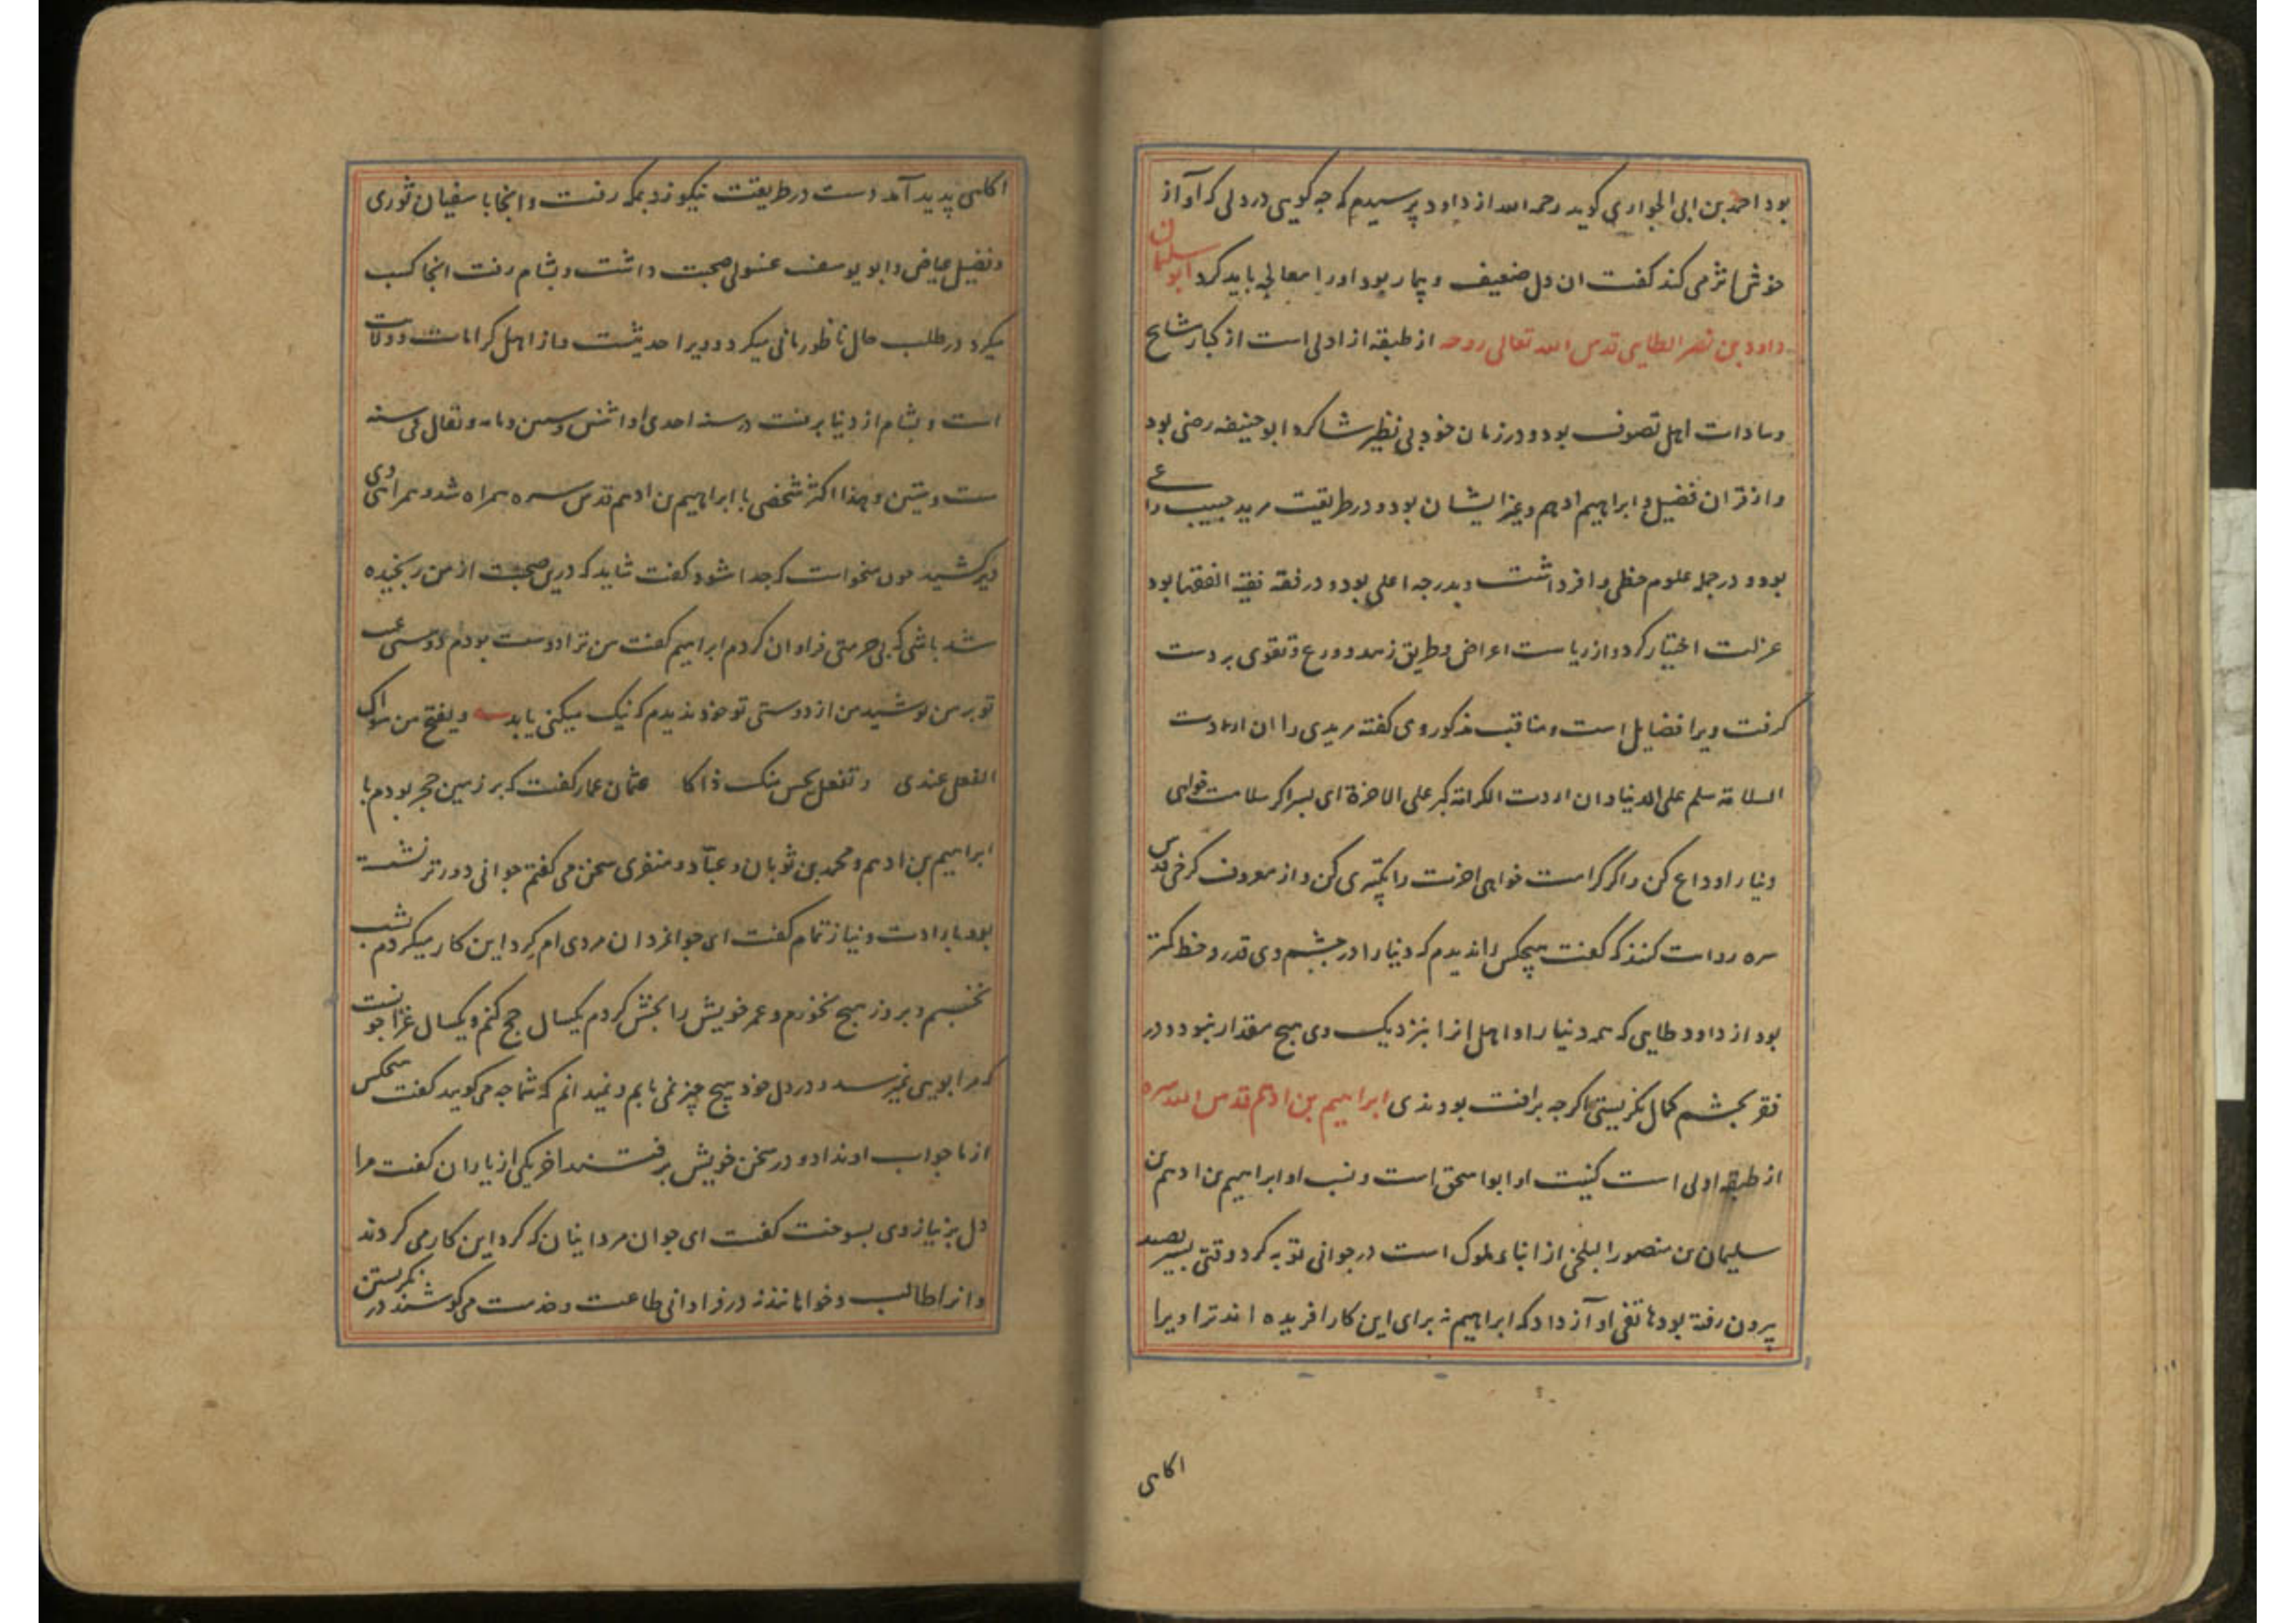 بود احمد بن ابی الحواری کوید رحمه الله از داود پرسیدم که چه کویی در دلی که آواز
خوش اثر می کند کفت ان دل ضعیف و بیمار بود او را معالجه باید کرد ابو سلیمان
داود بن نصر الطایی قدس الله تعالی روحه از طبقه از اولی است از کبار مشایخ
و سادات اهل تصوف بود و در زمان خود بی نظیر شاکرد ابو حنیفه رضی بود
و از قران فضیل و ابراهیم ادهم و غیر ایشان بود و در طریقت مرید حبیب راعی
بود و در جمله علوم حظی وافر داشت و بدرجه اعلی بود و در فقه فقیه الفقها بود
عزلت اختیار کرد و از ریاست اعراض و طریق زهد و ورع و تقوی بر دست
کرفت ویرا فضایل است و مناقب مذکور وی کفته مریدی را ان اردت
السلامة سلم علی الدنیا و ان اردت الکرامة کبر علی الاخرة ای پسر اکر سلامت خواهی
دنیا را وداع کن و اکر کرامت خواهی اخرت را تکبیری کن و از معروف کرخی قدس
سره روایت کنند که کفت هیچکس را ندیدم که دنیا را در چشم وی قدر و خطر کمتر
بود از داود طایی که همه دنیا را و اهل انرا بنزدیک وی هیچ مقدار نبود و در
فقر بچشم کمال نکریستی اکرچه بر افت بودندی ابراهیم بن ادهم قدس الله سره
از طبقه اولی است کنیت او ابو اسحق است و نسب او ابراهیم بن ادهم بن
سلیمان بن منصور البلخی از ابناء ملوک است در جوانی توبه کرد وقتی بسیر بصید
بیرون رفته بود هاتفی او آز داد که ابراهیم نه برای این کار افریده اند ترا ویرا
اکاهی
اکاهی پدید آمد دست در طریقت نیکو زد بمکه رفت و انجا با سفیان ثوری
و فضیل عیاض و ابو یوسف غسولی صحبت داشت و بشام رفت انجا کسب
میکرد در طلب حلال ناطوربانی میکرد و ویرا حدیثست و از اهل کرامات و ولایت
است و بشام از دنیا برفت در سنه احدی او اثنین و ستین و مایه و یقال فی سنه
ست و ستین و هذا اکثر شخصی با ابراهیم بن ادهم قدس سره همراه شد و همراهی وی
دیر کشید چون میخواست که جدا شود کفت شاید که درین صحبت از من رنجیده
شده باشی که بی حرمتی فراوان کردم ابراهیم کفت من ترا دوست بودم دوستی عیب
تو بر من پوشید من از دوستی تو خود ندیدم که نیک میکنی یا بد و یقبح من سواک
الفعل عندی و تفعله یحسن منک ذاکا عثمان عمار کفت که بر زمین حجر بودم با
ابراهیم بن ادهم و محمد بن ثوبان و عباد و منقری سخن می کفتم جوانی دورتر نشسته
بود با رادت و نیاز تمام کفت ای جوانمردان مردی ام کرد این کار میکردم شب
نخسبم و بروز هیچ نخورم و عمر خویش را بخش کردم یکسال حج کنم و یکسال غزا چونست
که مرا بویی نمیرسد و در دل خود هیچ چیز نمی یابم و نمیدانم که شما چه می کویید کفت هیچکس
از ما جواب او نداد و در سخن خویش برفتند اخر یکی از یاران کفت مرا
دل بر نیاز وی بسوخت کفت ای جوان مرد اینان که کرد این کار می کردند
و انرا طالب و خواهانند نه در فراوانی طاعت و خدمت می کوشند در نکریستن